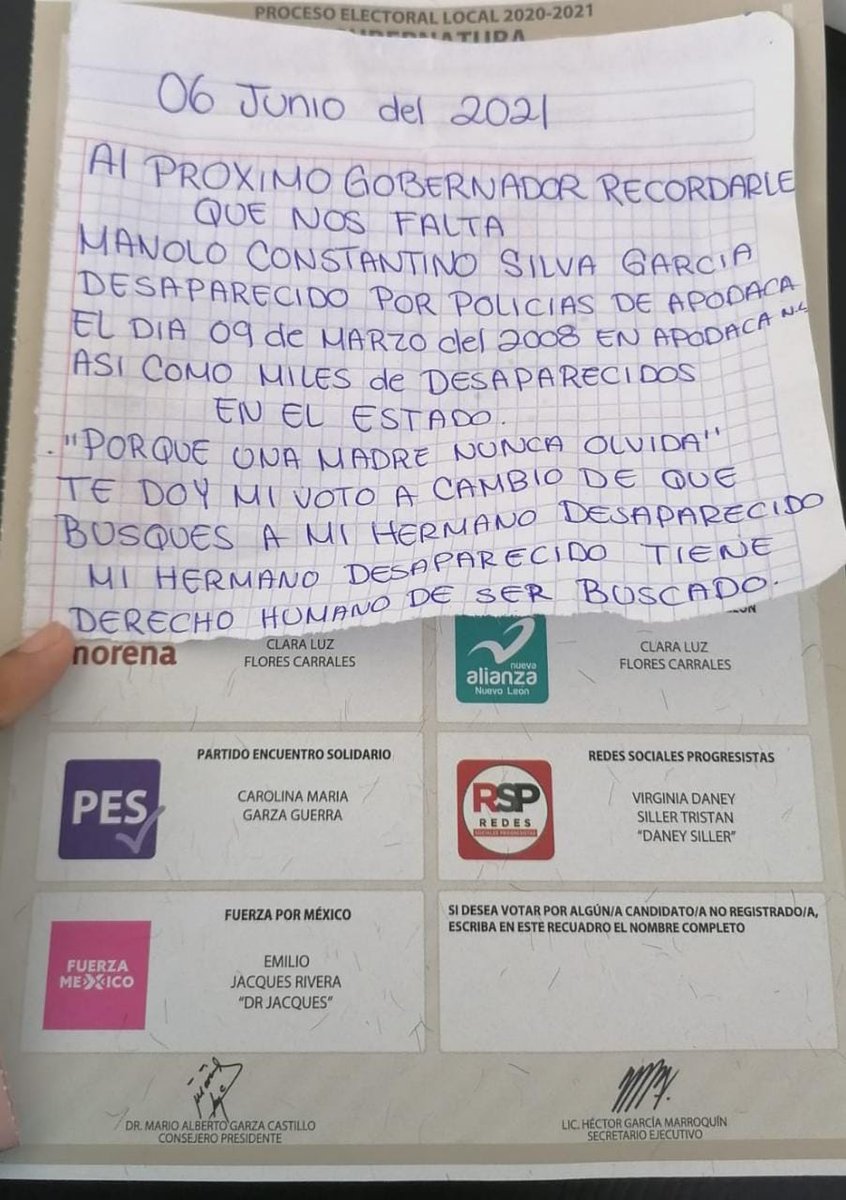 PROCESO ELECTORAL LOCAL 2020-2021
GUBERNATURA
06 JUNIO del 2021
Al PROXIMO GOBERNADOR RECORDARLE
QUE NOS FALTA
MANOLO CONSTANTINO SILVA GARCIA
DESAPARECIDO POR POLICIAS DE APODACA
EL DIA 09 de MARZO del 2008 EN APODACA N.L
ASI COMO MILES de DESAPARECIDOS
EN EL ESTADO.
"PORQUE UNA MADRE NUNCA OLVIDA"
TE DOY MI VOTO A CAMBIO DE QUE
BUSQUES A MI HERMANO DESAPARECIDO
MI HERMANO DESAPARECIDO TIENE
DERECHO HUMANO DE SER BUSCADO.
morena
CLARA LUZ
FLORES CARRALES
nueva
alianza
Nuevo León
CLARA LUZ
FLORES CARRALES
PARTIDO ENCUENTRO SOLIDARIO
PES
CAROLINA MARIA
GARZA GUERRA
REDES SOCIALES PROGRESISTAS
RSP
REDES
SOCIALES PROGRESISTAS
VIRGINIA DANEY
SILLER TRISTAN
"DANEY SILLER"
FUERZA POR MÉXICO
FUERZA
MEXICO
EMILIO
JACQUES RIVERA
"DR JACQUES"
SI DESEA VOTAR POR ALGÚN/A CANDIDATO/A NO REGISTRADO/A,
ESCRIBA EN ESTE RECUADRO EL NOMBRE COMPLETO
DR. MARIO ALBERTO GARZA CASTILLO
CONSEJERO PRESIDENTE
LIC. HÉCTOR GARCÍA MARROQUÍN
SECRETARIO EJECUTIVO